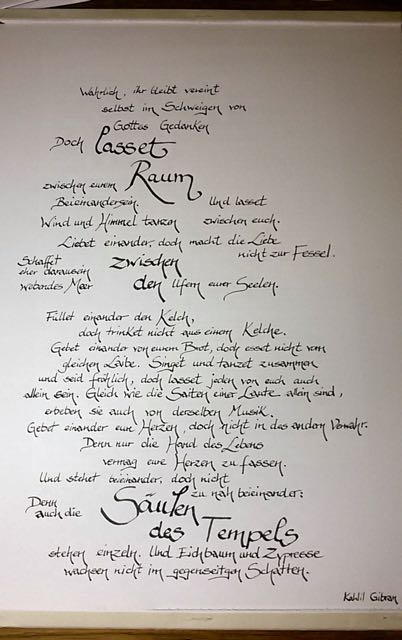 Wahrlich, ihr bleibt vereint
selbst im Schweigen von
Gottes Gedanken
Doch lasset
Raum
zwischen eurem
Beieinandersein. Und lasset
Wind und Himmel tanzen zwischen euch.
Liebet einander, doch macht die Liebe
nicht zur Fessel.
Schaffet
eher daraus ein
webendes Meer
zwischen
den Ufern eurer Seelen.
Füllet einander den Kelch,
doch trinket nicht aus einem Kelche.
Gebet einander von eurem Brot, doch esset nicht vom
gleichen Laibe. Singet und tanzet zusammen
und seid fröhlich, doch lasset jeden von euch auch
allein sein. Gleich wie die Saiten einer Laute allein sind,
erbeben sie auch von derselben Musik.
Gebet einander eure Herzen, doch nicht in des andern Verwahr.
Denn nur die Hand des Lebens
vermag eure Herzen zu fassen.
Und stehet beieinander, doch nicht
zu nah beieinander:
Denn
auch die
Säulen
des Tempels
stehen einzeln. Und Eichbaum und Zypresse
wachsen nicht im gegenseitgen Schatten.
Kahlil Gibran